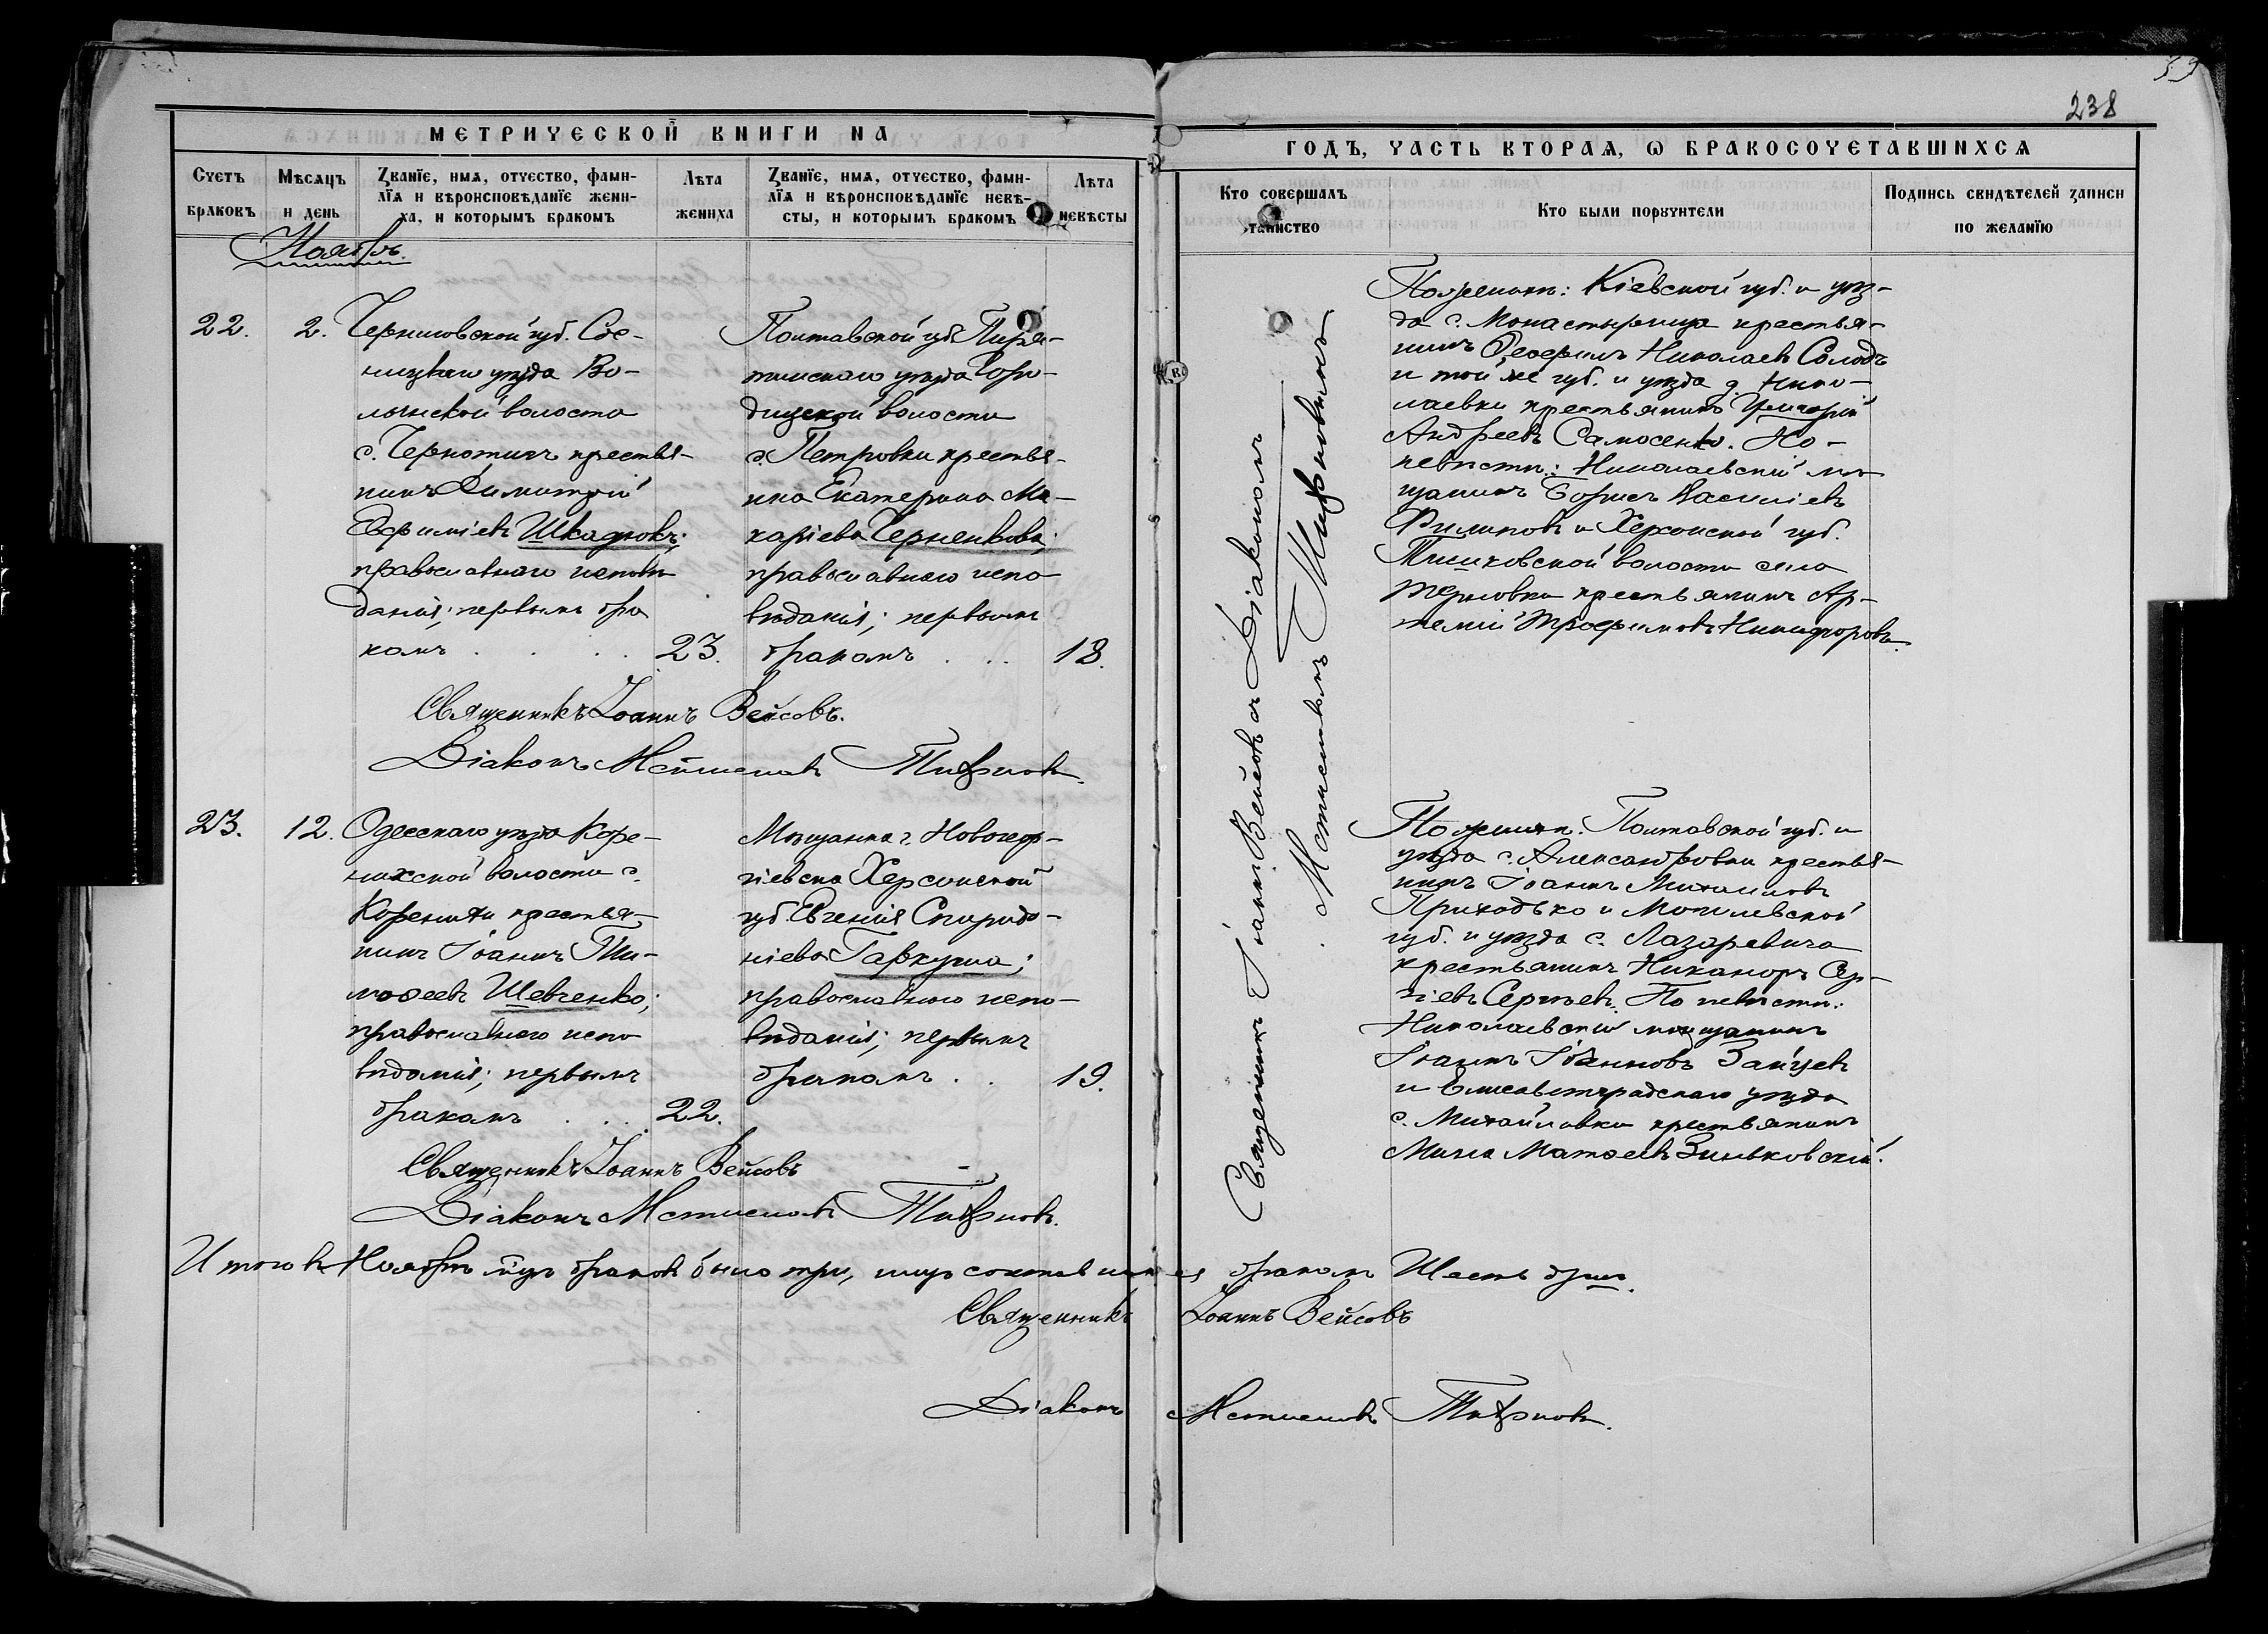 59
238
МЕТРИЧЕСКОЙ КНИГИ НА
ГОДЪ, ЧАСТЬ ВТОРАѦ, Ѡ БРАКОСОЧЕТАВШИХСѦ
Счетъ браковъ
Мѣсѧцъ и день
Званїе, имѧ, отчество, фами-
лїѧ и вѣроисповѣданїе жени-
ха, и которымъ бракомъ
Лѣта жениха
Званїе, имѧ, отчество, фами-
лїѧ и вѣроисповѣданїе невѣ-
сты, и которымъ бракомъ
Лѣта невѣсты
Кто совершалъ таинство
Кто были поручители
Подпись свидѣтелей записи
по желанїю
Ноябрь.
22.
2.
Черниговской губ. Сос-
ницкаго уѣзда Во-
лынской волости
с. Чернотичъ крестья-
нинъ Димитрій
Евфиміевъ Шкадюкъ;
православнаго исповѣ
данія; первымъ бра
комъ . . . . 23.
Полтавской губ. Пиря-
тинскаго уѣзда Горо-
дищской волости
с. Петровки крестья-
нка Екатерина Ма-
каріева Черненкова;
православнаго испо
вѣданія; первымъ
бракомъ . . . 18.
Священникъ Іоаннъ Вейсовъ.
Діаконъ Мстиславъ
Священникъ Іоаннъ Вейсовъ съ Діакономъ
Мстиславомъ
По женихѣ: Кіевской губ. и уѣз-
да с. Монастырища крестья-
нинъ Ѳеофилъ Николаевъ Солодъ
и той же губ. и уѣзда д. Нико-
лаевки крестьянинъ Григорій
Андреевъ Самосенко. По
невѣстѣ: Николаевскій мѣ
щанинъ Борисъ Василіевъ
Филиповъ и Херсонской губ.
волости села
Терновки крестьянинъ Ар-
темій Трофимовъ Никифоровъ.
23.
12.
Одесскаго уѣзда Коре-
нихской волости с.
Коренихи крестья-
нинъ Іоаннъ Ти-
моѳеевъ Шевченко;
православнаго испо
вѣданія; первымъ
бракомъ . . . 22.
Мѣщанка г. Новогеор-
гіевска Херсонской
губ. Евгенія Спиридо-
ніева Гаркуша;
православнаго испо-
вѣданія; первымъ
бракомъ . . 19.
Священникъ Іоаннъ Вейсовъ
Діаконъ Мстиславъ
По женихѣ. Полтавской губ. и
уѣзда с. Александровки крестья-
нинъ Іоаннъ Михаиловъ
Приходько и Могилевской
губ. и уѣзда с. Лазаревича
крестьянинъ Никаноръ Сер-
гіевъ Сергѣевъ. По невѣстѣ:
Николаевскій мѣщанинъ
Іоаннъ Іоанновъ Зайцевъ
и Елисаветградскаго уѣзда
с. Михайловки крестьянинъ
Матѳеевъ Зиньковскій.
Итого въ Ноябрѣ м-цѣ браковъ было три, лицъ сочетавшихся бракомъ Шесть
Священникъ Іоаннъ Вейсовъ
Діаконъ Мстиславъ